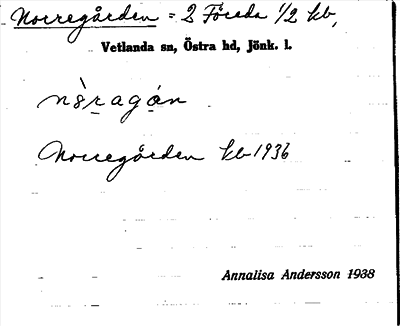 Norregården = 2 Föreda 1/2 kb,
Vetlanda sn, Östra hd, Jönk. l.
nòragån
Norregården kb 1936
Annalisa Andersson 1938